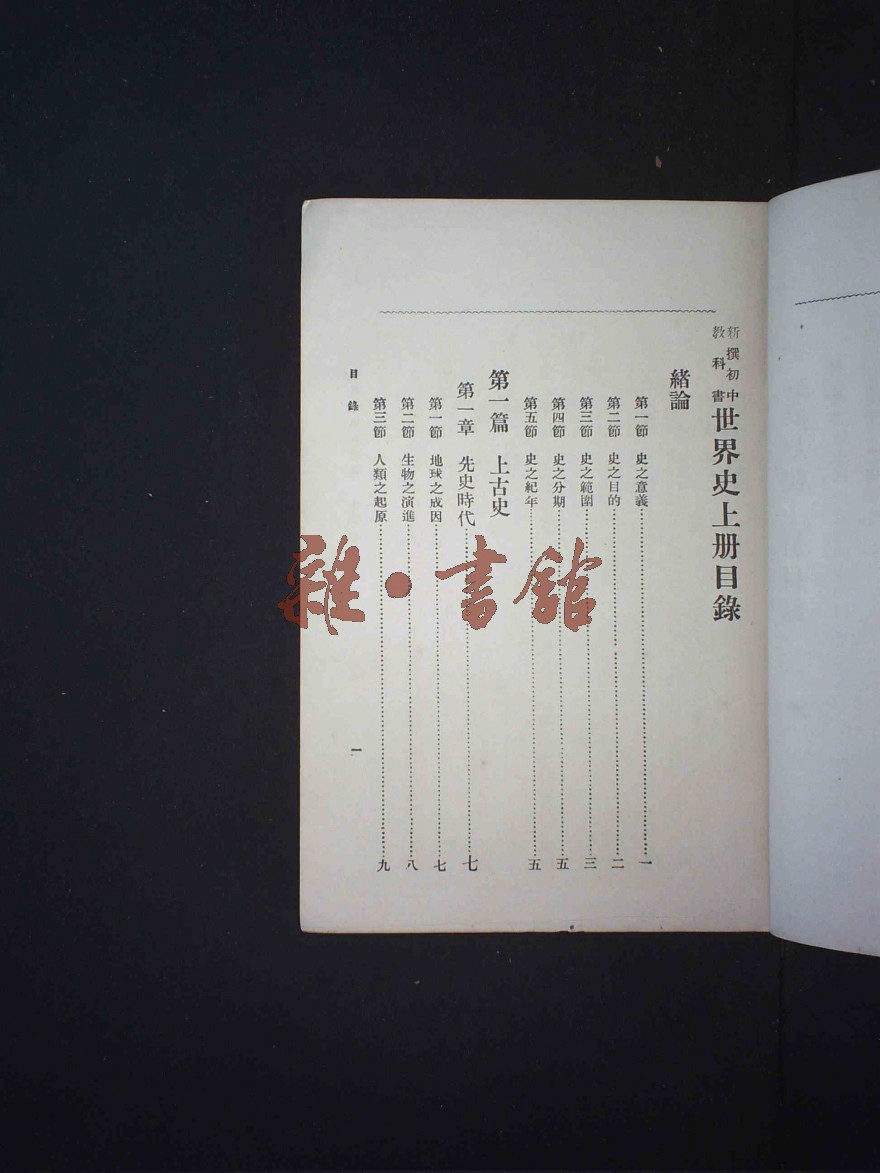 新撰初中教科書 世界史上册目錄
緒論
第一節 史之意義……一
第二節 史之目的……二
第三節 史之範圍……三
第四節 史之分期……五
第五節 史之紀年……五
第一篇 上古史
第一章 先史時代……七
第一節 地球之成因……七
第二節 生物之演進……八
第三節 人類之起原……九
目錄 一
雜·書館